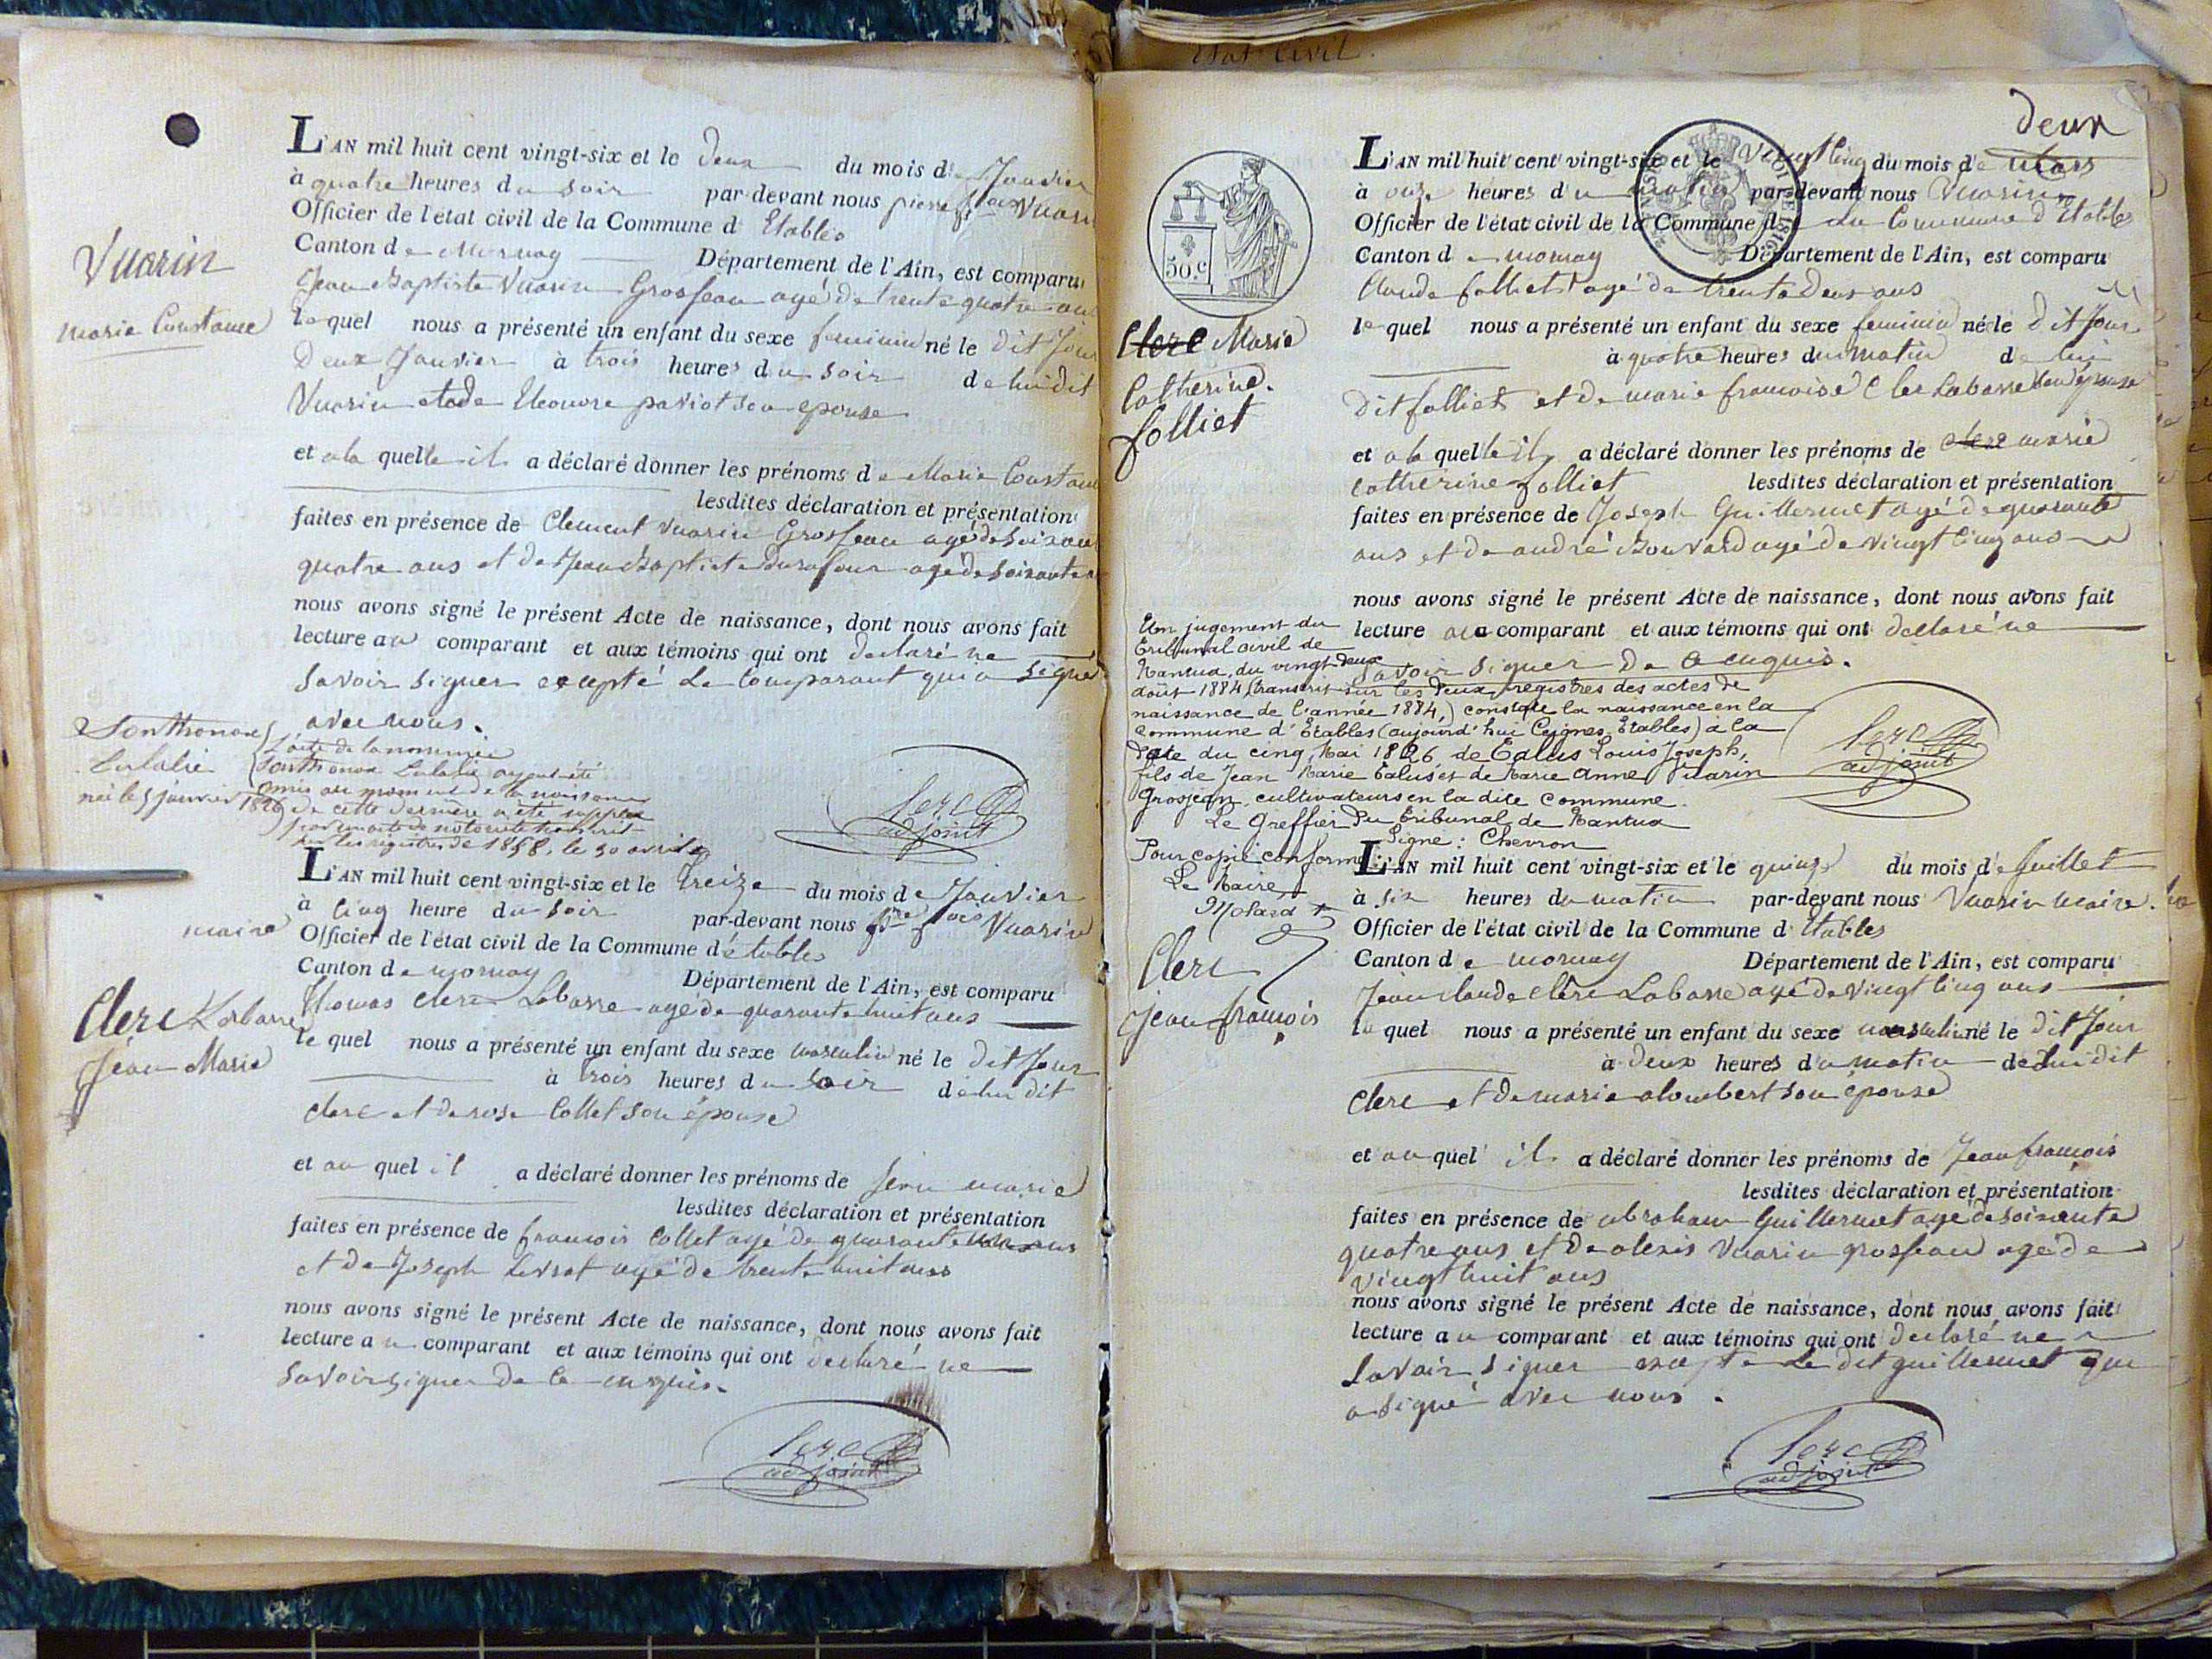 Etat Civil.
L'AN mil huit cent vingt-six et le Deux du mois de Janvier
à quatre heures du soir par-devant nous pierre fcois Vuarin
Officier de l'état civil de la Commune d Etables
Canton de Mornay Département de l'Ain, est comparu
Jean Baptiste Vuarin Grosjean agé de trente quatre ans
lequel nous a présenté un enfant du sexe feminin né le dit Jour
Deux Janvier à trois heures du soir de lui dit
Vuarin et de Eleonore paviot son epouse
et a la quelle il a déclaré donner les prénoms de Marie Constance
lesdites déclaration et présentation
faites en présence de Clement Vuarin Grosjean agé de soixante
quatre ans et de Jean Baptiste Durafour agé de soixante
nous avons signé le présent Acte de naissance, dont nous avons fait
lecture au comparant et aux témoins qui ont declaré ne
savoir signer excepté Le Comparant qui a signé
avec nous.
Clerc
adjoint
Vuarin
marie Constance
Sonthonax
Eulalie
née le 5 janvier 1826
L'acte de la nommée
Sonthonax Eulalie ayant été
omis au moment de la naissance
de cette dernière a été suppléé
par un acte de notoriété transcrit
sur les registres de 1858, le 30 avril
L'AN mil huit cent vingt-six et le treize du mois de Janvier
à cinq heure du soir par-devant nous pre fcois Vuarin
maire Officier de l'état civil de la Commune d'étables
Canton de mornay Département de l'Ain, est comparu
Thomas Clerc Labarre agé de quarante huit ans
le quel nous a présenté un enfant du sexe masculin né le dit Jour
à trois heures du soir de lui dit
clerc et de rose Collet son épouse
et au quel il a déclaré donner les prénoms de Jean marie
lesdites déclaration et présentation
faites en présence de francois Collet agé de quarante ans
et de Joseph Levrat agé de trente huit ans
nous avons signé le présent Acte de naissance, dont nous avons fait
lecture au comparant et aux témoins qui ont declaré ne
savoir signer de ce enquis.
Clerc
adjoint
Clerc Labarre
Jean Marie
deux
50.c
L'AN mil huit cent vingt-six et le Vingt Cinq du mois de Mars
à onze heures du matin par-devant nous Vuarin
Officier de l'état civil de la Commune de La Commune d'Etables
Canton de mornay Département de l'Ain, est comparu
Claude folliet agé de trente Deux ans
lequel nous a présenté un enfant du sexe feminin né le dit Jour
à quatre heures du matin de lui
Dit folliet et de marie francoise Clerc Labarre son épouse
et a la quelle il a déclaré donner les prénoms de clerc marie
catherine folliet lesdites déclaration et présentation
faites en présence de Joseph Guillermet agé de quarante
ans et de andré Bouvard agé de vingt cinq ans
nous avons signé le présent Acte de naissance, dont nous avons fait
lecture au comparant et aux témoins qui ont declaré ne
savoir signer De Ce enquis.
Clerc
adjoint
Clerc Marie
Catherine.
folliet
Un jugement du
tribunal civil de
Nantua, du vingt deux
août 1884 (transcrit sur les deux registres des actes de
naissance de l'année 1884,) constate la naissance en la
commune d'Etables (aujourd'hui Ceignes, Etables) à la
date du cinq Mai 1826, de Caluis Louis Joseph,
fils de Jean Marie Caluis et de Marie Anne Vuarin
Grosjean, cultivateurs en la dite commune.
Le Greffier du tribunal de Nantua
Signé : Chevron
Pour copie conforme :
Le Maire,
L'AN mil huit cent vingt-six et le quinze du mois de Juillet
à six heures du matin par-devant nous Vuarin maire.
Officier de l'état civil de la Commune d Etables
Canton de mornay Département de l'Ain, est comparu
Jean claude Clerc Labarre agé de vingt cinq ans
le quel nous a présenté un enfant du sexe masculin né le dit Jour
à deux heures du matin de lui dit
Clerc et de marie alombert son épouse
et au quel il a déclaré donner les prénoms de Jean francois
lesdites déclaration et présentation
faites en présence de abraham Guillermet agé de soixante
quatre ans et de alexis Vuarin grosjean agé de
vingt huit ans
nous avons signé le présent Acte de naissance, dont nous avons fait
lecture au comparant et aux témoins qui ont declaré ne
savoir signer excepté Le dit guillermet qui
a signé avec nous.
Clerc
adjoint
Clerc
Jean francois